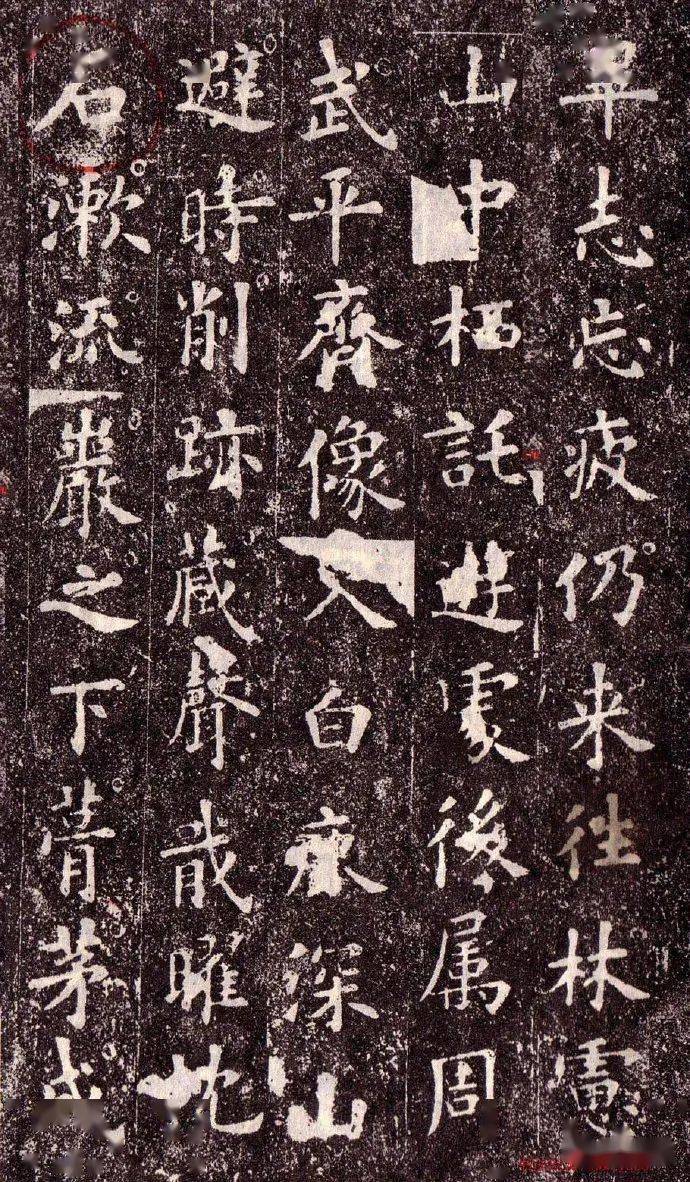 志忘疲仍来往林慮
山中栖託遊處後属周
武平齊像入白鹿深山
避時削跡藏聲戢曜枕
石漱流巖之下葺茅